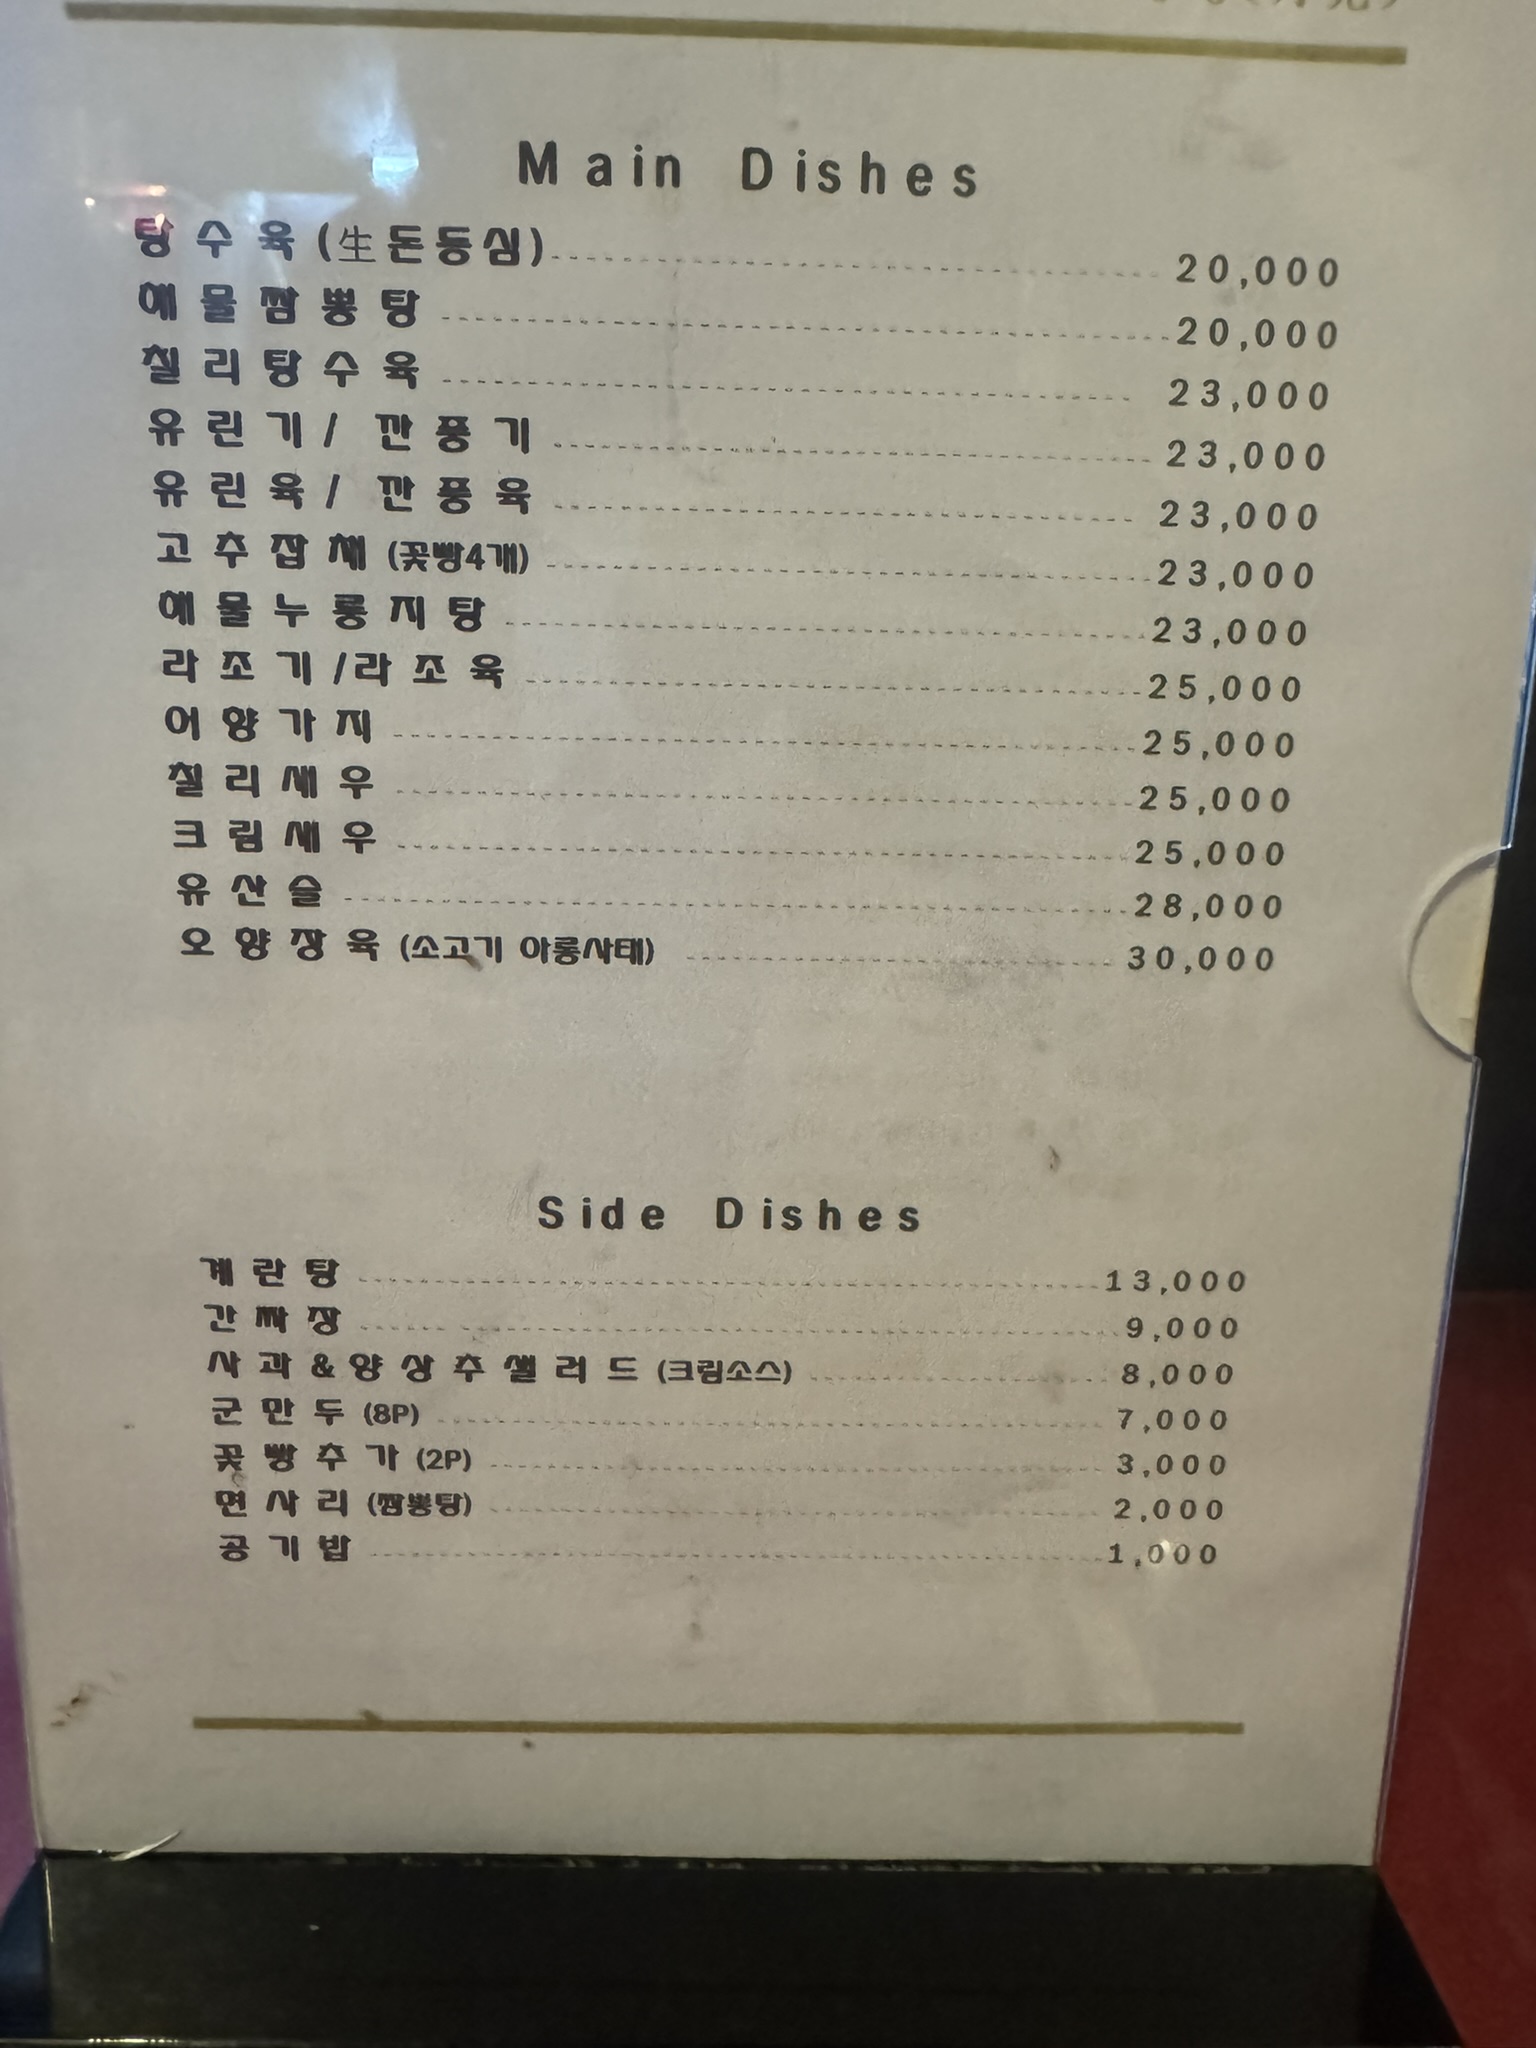 Main Dishes
탕수육(生돈등심) 20,000
해물짬뽕탕 20,000
칠리탕수육 23,000
유린기/ 깐풍기 23,000
유린육/ 깐풍육 23,000
고추잡채 (꽃빵4개) 23,000
해물누룽지탕 23,000
라조기/라조육 25,000
어향가지 25,000
칠리새우 25,000
크림새우 25,000
유산슬 28,000
오향장육 (소고기 아롱사태) 30,000
Side Dishes
계란탕 13,000
간짜장 9,000
사과&양상추샐러드 (크림소스) 8,000
군만두 (8P) 7,000
꽃빵추가 (2P) 3,000
면사리 (짬뽕탕) 2,000
공기밥 1,000